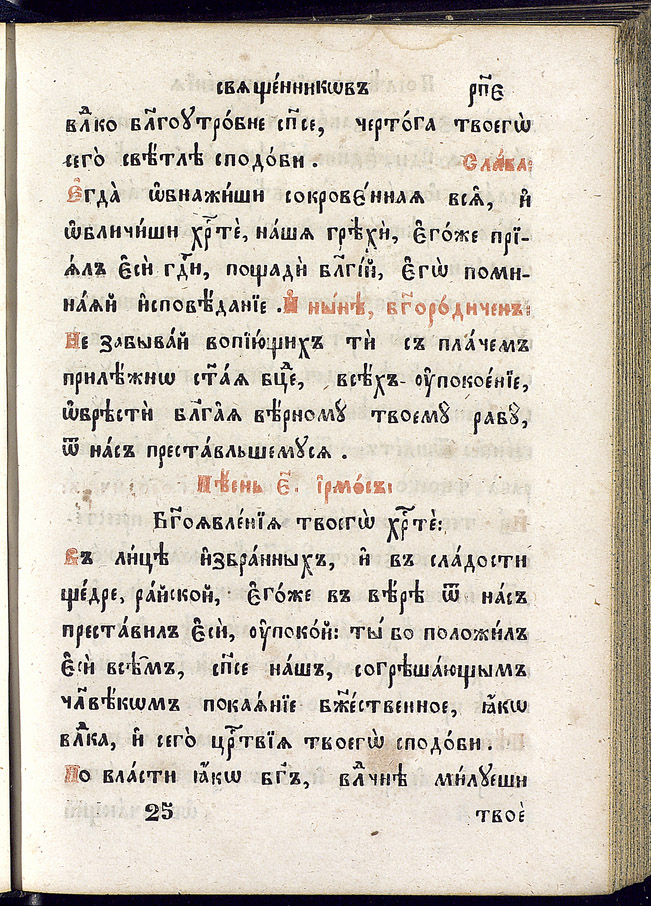 свѧще́нникѡвъ рп҃є
влⷣко бл҃гоꙋтро́бне сп҃се, черто́га твоегѡ̀
сего̀ свѣ́тлѣ сподо́би. Сла́ва:
Є҆гда̀ ѡ҆бнажи́ши сокрове́нная всѧ̑, и҆
ѡ҆бличи́ши хрⷭ҇тѐ, на́шѧ грѣхѝ, є҆го́же прїѧ́лъ
є҆сѝ гдⷭ҇и, пощадѝ бл҃гі́й, є҆гѡ̀ помина́ѧй
и҆сповѣ́данїе. И҆ ны́нѣ, бг҃оро́диченъ:
Не забыва́й вопїю́щихъ тѝ съ пла́чемъ
прилѣ́жнѡ ст҃а́ѧ бцⷣе, всѣ́хъ оу҆покое́нїе,
ѡ҆брѣстѝ бл҃га̑ѧ вѣ́рномꙋ твоемꙋ̀ рабꙋ̀,
ѿ на́съ преста́вльшемꙋсѧ.
Пѣ́снь є҃. і҆рмо́съ:
Бг҃оѧвле́нїѧ твоегѡ̀ хрⷭ҇тѐ:
Въ ли́цѣ и҆збра́нныхъ, и҆ въ сла́дости
ще́дре, ра́йской, є҆го́же въ вѣ́рѣ ѿ на́съ
преста́вилъ є҆сѝ, оу҆поко́й: ты́ бо положи́лъ
є҆сѝ всѣ̑мъ, сп҃се на́шъ, согрѣша́ющымъ
чл҃вѣ́кѡмъ покаѧ́нїе бж҃е́ственное, ꙗ҆́кѡ
влⷣка, и҆ сего̀ црⷭ҇твїѧ твоегѡ̀ сподо́би.
По вла́сти ꙗ҆́кѡ бг҃ъ, влⷣчнѣ ми́лꙋеши
25 твоѐ